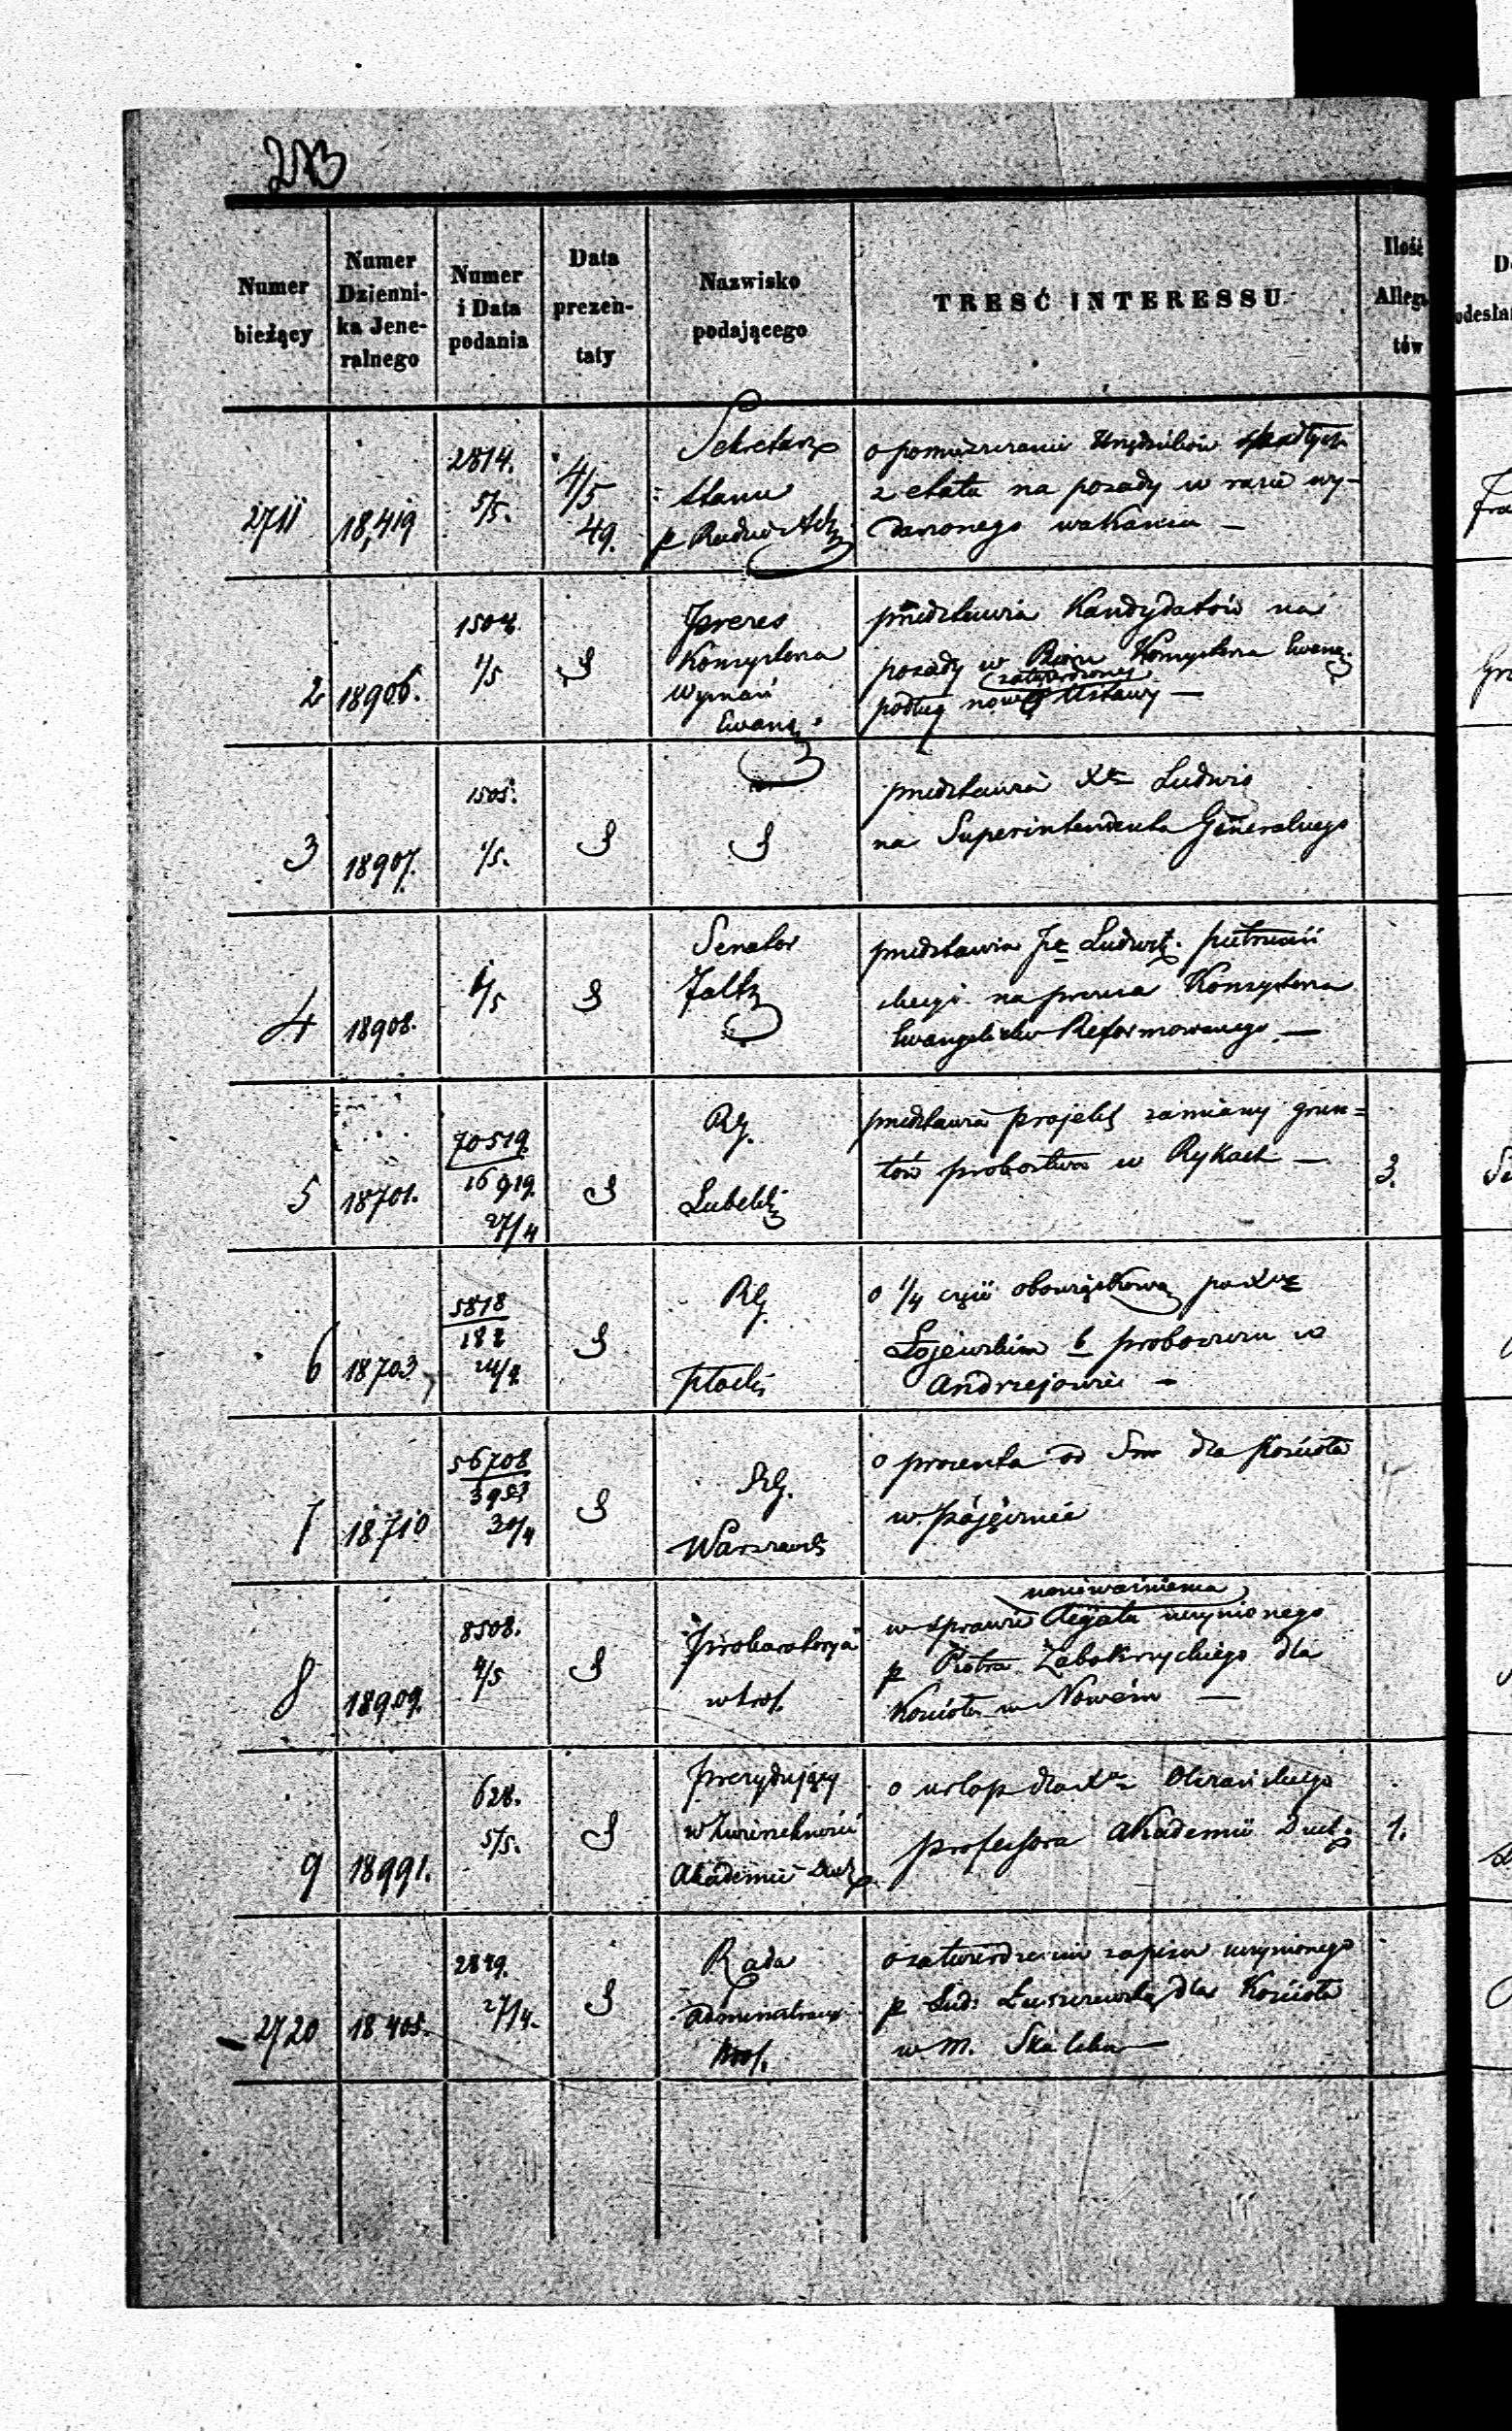 213
Numer bieżący
Numer Dzienni-ka Jene-ralnego
Numer i Data podania
Data prezen-taty
Nazwisko podającego
TRESĆ INTERESSU
Ilość Allega tów
2711 18,419 2814. 5/5. 4/5 49. Sekretarz Stanu p Radzie Adm
o pomieszczenie Urzędników spadłych
z etatu na posady w razie wy-
darzonego wakansu —
2 18906. 1504. 1/5 Prezes Konsystorza Wyznań Ewang.
przedstawia Kandydatów na
posady w Biórze Konsystorza Ewang.
zatwierdzonej
podług nowej Ustawy —
3 18907. 1505. 1/5.
przedstawia Xa Ludwig
na Superintendenta Generalnego
4 18908. 1/5 Senator Faltz
przedstawia Ludwig.
na prezesa Konsystorza
Ewangelicko Reformowanego —
5 18701. 70519 16919. 27/4 RG. Lubelski
przedstawia projekt zamiany grun=
tów probostwa w Rykach — 3.
6 18703 5818 182 RG. Płocki
o 1/4 część obowiązkową po Xdzu
Łojewskim b proboszczu w
Andrzejowie —
7 18710 56708 30/4 RG. Warszawski
o procenta od Sm dla Kościoła
w
8 18909. 8508. 4/5 Prokuratorya w Król.
unieważnienia
w sprawie legatu uczynionego
p Piotra Zabokrzyckiego dla
Kościoła w Nowem —
9 18991. 628. 5/5. Prezydujący w Zwierzchności Akademii Duch
o urlop dla Xa
professora Akademii Duch. 1.
2720 18405. 2849. 27/4. Rada Administracyj. Król.
o zatwierdzenie zapisu uczynionego
p Lud: Łuszczewską dla Kościoła
w m. —